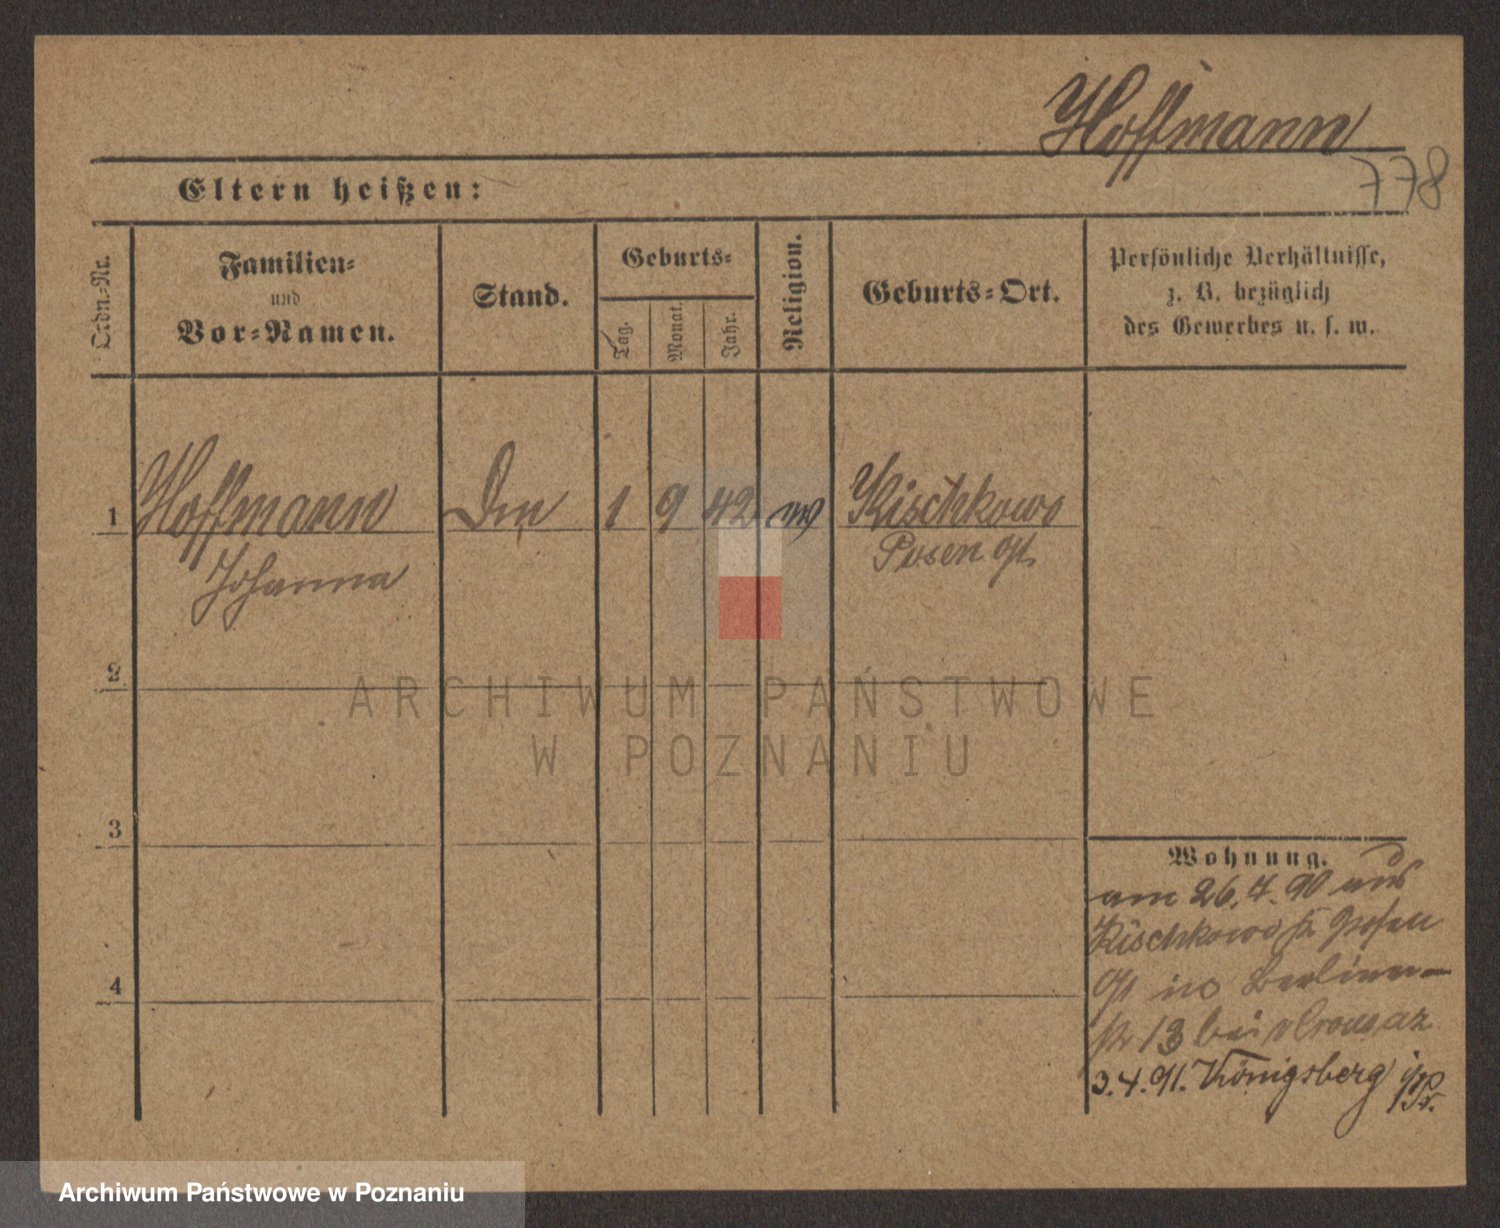 Hoffmann
778
Eltern heißen:
Ordn.-Nr.
Familien-
und
Vor-Namen.
Stand.
Geburts-
Tag.
Monat.
Jahr.
Religion.
Geburts-Ort.
Persönliche Verhältnisse,
z. B. bezüglich
des Gewerbes u. s. w.
1 Hoffmann 1 9 42 Kischkowo
Johanna Posen
2
ARCHIWUM PAŃSTWOWE
W POZNANIU
3
4
Wohnung.
am 26.7.90 aus
Kischkowo Posen
in Berliner-
13 bei
3.4.91. Königsberg i/Pr.
Archiwum Państwowe w Poznaniu